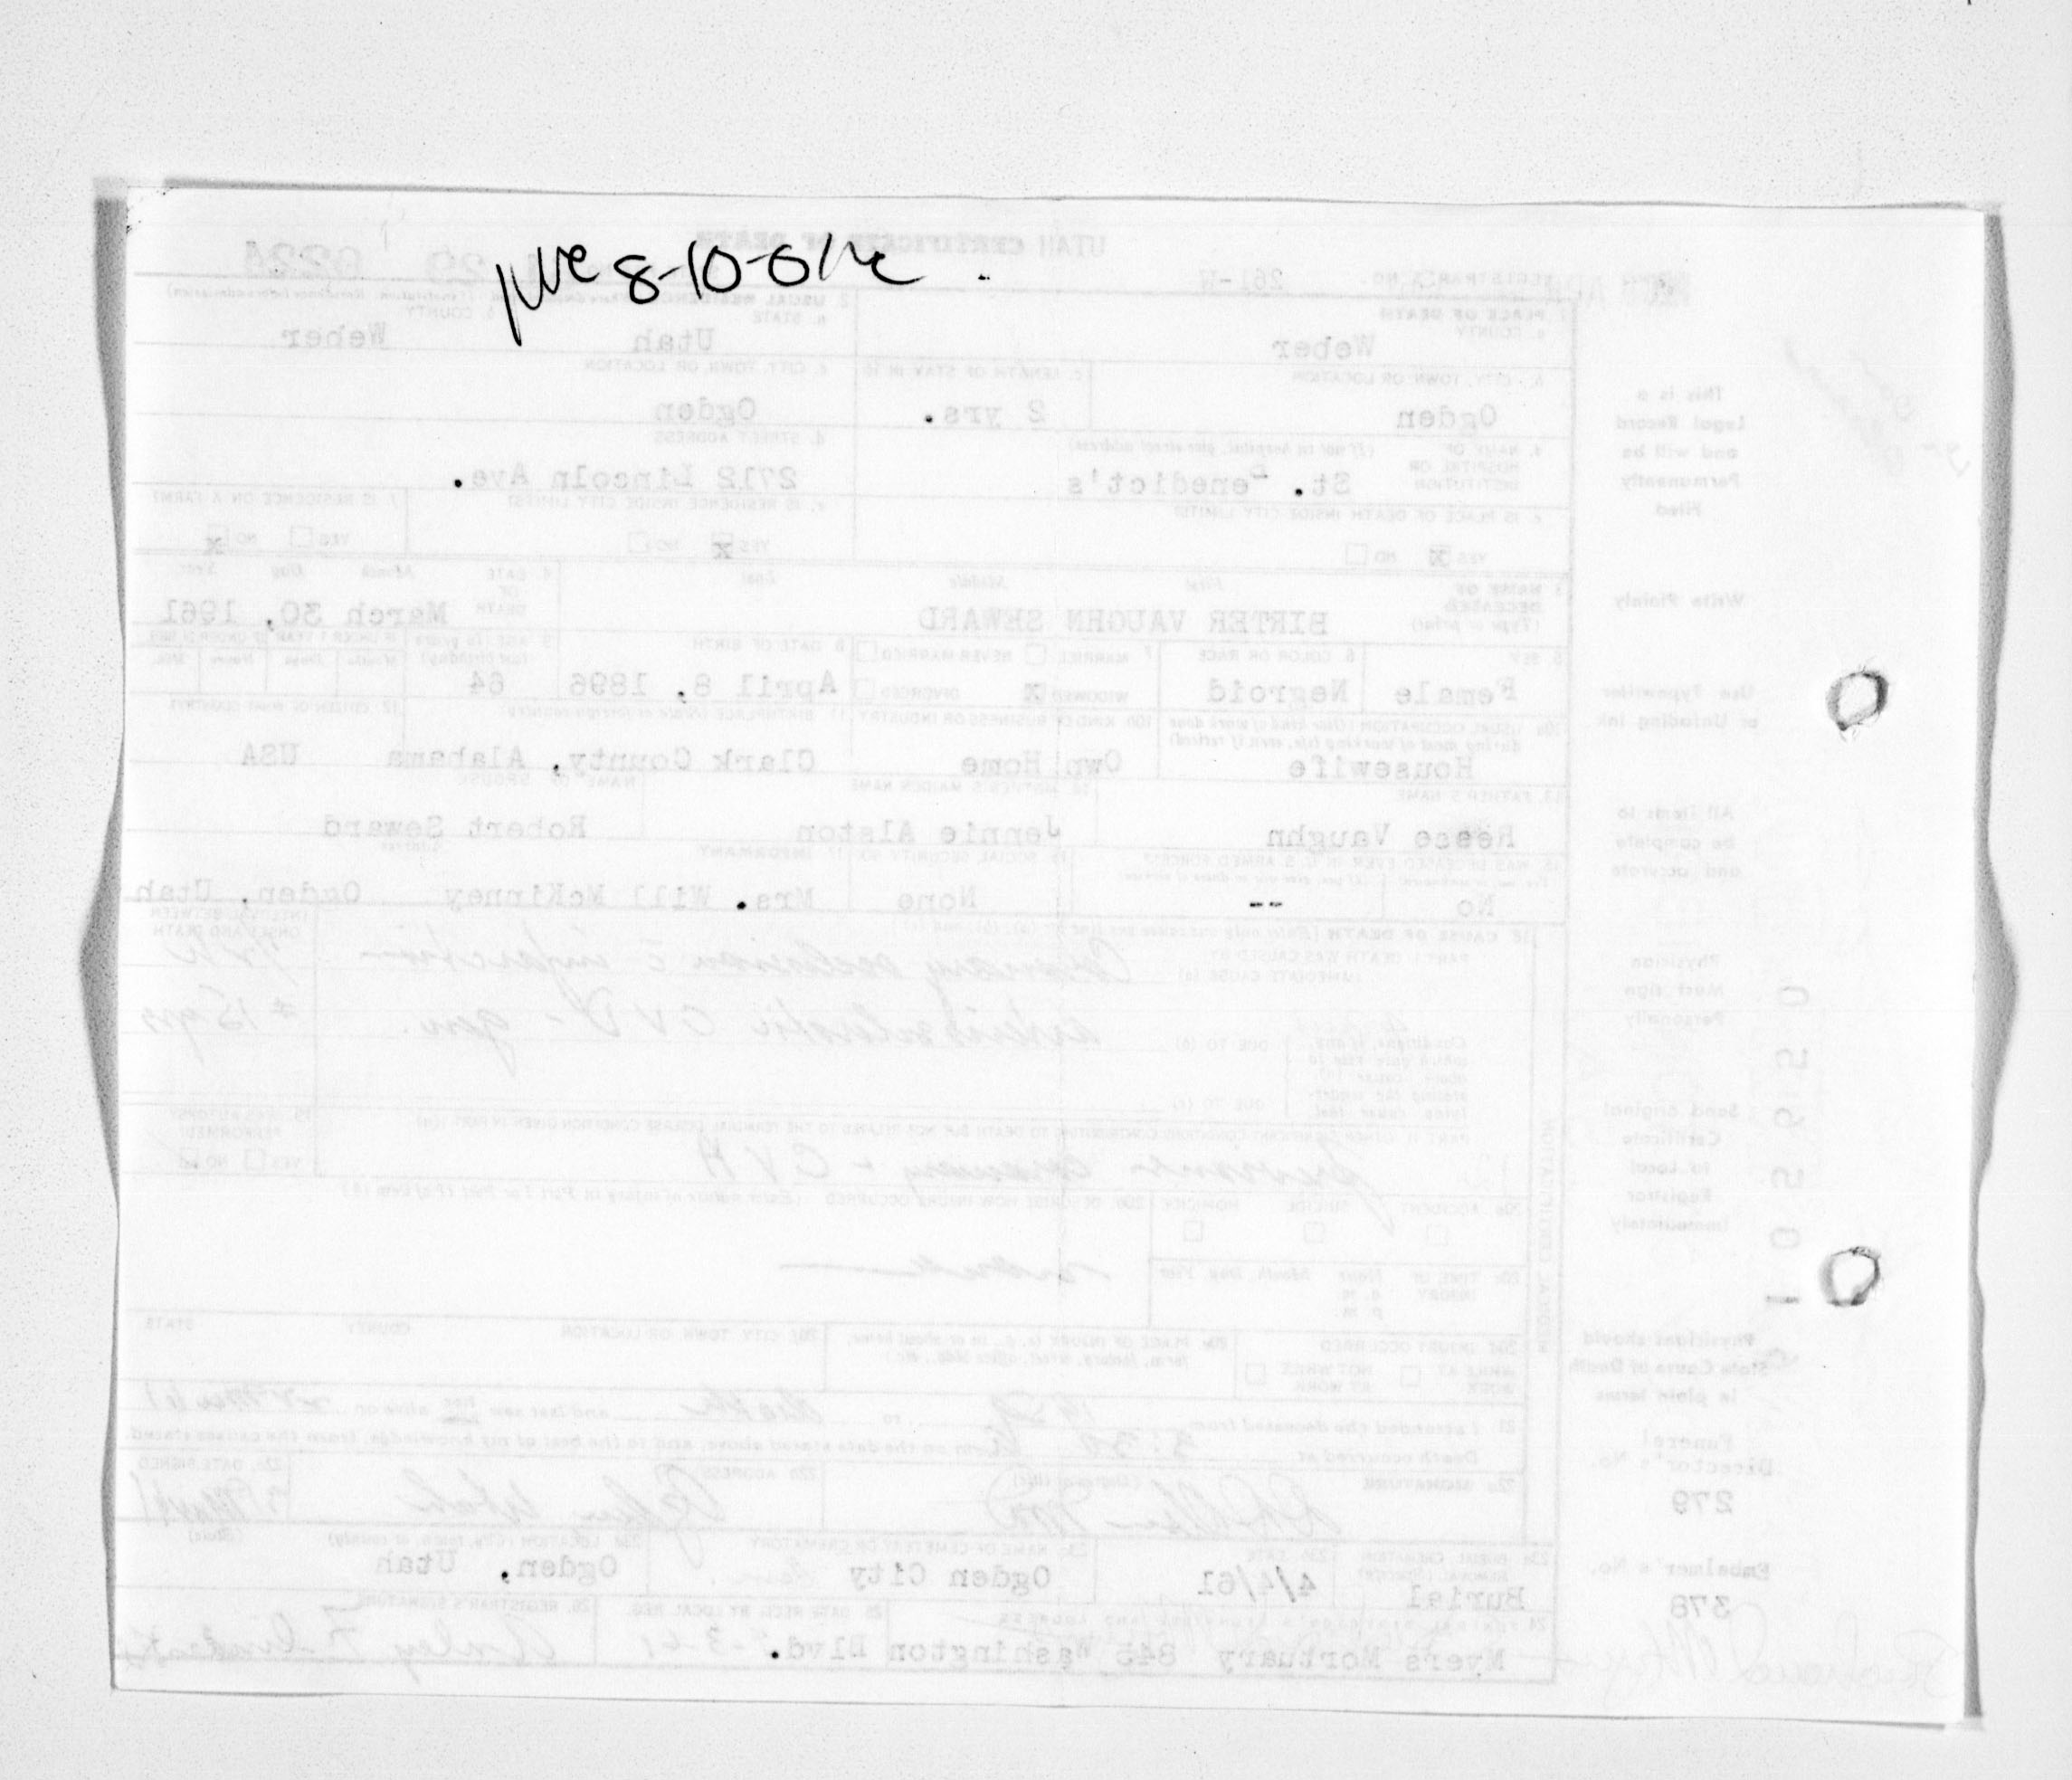 8-10-61
UTAH CERTIFICATE OF DEATH
REGISTRAR'S NO. 261-W
PLACE OF DEATH
a. COUNTY
Weber
2. USUAL RESIDENCE
a. STATE
Utah
b. COUNTY
Weber
b. CITY, TOWN OR LOCATION
Ogden
c. LENGTH OF STAY IN 1b
2 yrs.
c. CITY, TOWN OR LOCATION
Ogden
d. NAME OF HOSPITAL OR INSTITUTION
(If not in hospital, give street address)
St. Benedict's
d. STREET ADDRESS
2712 Lincoln Ave.
e. IS PLACE OF DEATH INSIDE CITY LIMITS?
YES X NO
e. IS RESIDENCE INSIDE CITY LIMITS?
YES X NO
f. IS RESIDENCE ON A FARM?
YES NO X
3. NAME OF DECEASED
(Type or print)
First Middle Last
BIRTER VAUGHN SEWARD
4. DATE OF DEATH
Month Day Year
March 30, 1961
5. SEX
Female
6. COLOR OR RACE
Negroid
7. MARRIED NEVER MARRIED
WIDOWED X DIVORCED
8. DATE OF BIRTH
April 8, 1896
9. AGE (In years last birthday)
64
10a. USUAL OCCUPATION (Give kind of work done during most of working life, even if retired)
Housewife
10b. KIND OF BUSINESS OR INDUSTRY
Own Home
11. BIRTHPLACE (State or foreign country)
Clark County, Alabama
12. CITIZEN OF WHAT COUNTRY?
USA
13. FATHER'S NAME
Reese Vaughn
14. MOTHER'S MAIDEN NAME
Jennie Alston
NAME OF SPOUSE
Robert Seward
15. WAS DECEASED EVER IN U.S. ARMED FORCES?
No --
16. SOCIAL SECURITY NO.
None
17. INFORMANT Address
Mrs. Will McKinney Ogden, Utah
18. CAUSE OF DEATH
PART I. DEATH WAS CAUSED BY:
IMMEDIATE CAUSE (a)
Coronary occlusion c infarction
INTERVAL BETWEEN ONSET AND DEATH
DUE TO (b)
15 yrs
DUE TO (c)
PART II. OTHER SIGNIFICANT CONDITIONS CONTRIBUTING TO DEATH BUT NOT RELATED TO THE TERMINAL DISEASE CONDITION GIVEN IN PART I (a)
previous coronary - CVA
19. WAS AUTOPSY PERFORMED?
YES NO
20a. ACCIDENT SUICIDE HOMICIDE
20b. DESCRIBE HOW INJURY OCCURRED
20c. TIME OF INJURY Hour Month Day Year
a.m.
p.m.
20d. INJURY OCCURRED
WHILE AT WORK NOT WHILE AT WORK
20e. PLACE OF INJURY (e.g., in or about home, farm, factory, street, office bldg., etc.)
20f. CITY, TOWN OR LOCATION COUNTY STATE
21. I attended the deceased from to death and last saw her alive on
Death occurred at m on the date stated above, and to the best of my knowledge, from the causes stated.
22a. SIGNATURE (Degree or title)
22b. ADDRESS
Ogden Utah
22c. DATE SIGNED
23a. BURIAL, CREMATION, REMOVAL (Specify)
Burial
23b. DATE
4/4/61
23c. NAME OF CEMETERY OR CREMATORY
Ogden City
23d. LOCATION (City, town, or county) (State)
Ogden, Utah
24. FUNERAL DIRECTOR'S SIGNATURE AND ADDRESS
Myers Mortuary 845 Washington Blvd.
25. DATE RECD BY LOCAL REG.
4-3-61
26. REGISTRAR'S SIGNATURE
MEDICAL CERTIFICATION
This is a
Legal Record
and will be
Permanently
Filed
Write Plainly
Use Typewriter
or Unfading ink
All items to
be complete
and accurate
Physician
Must sign
Personally
Send original
Certificate
to Local
Registrar
Immediately
Physicians should
State Cause of Death
in plain terms
Funeral
Director's No.
279
Embalmer's No.
378